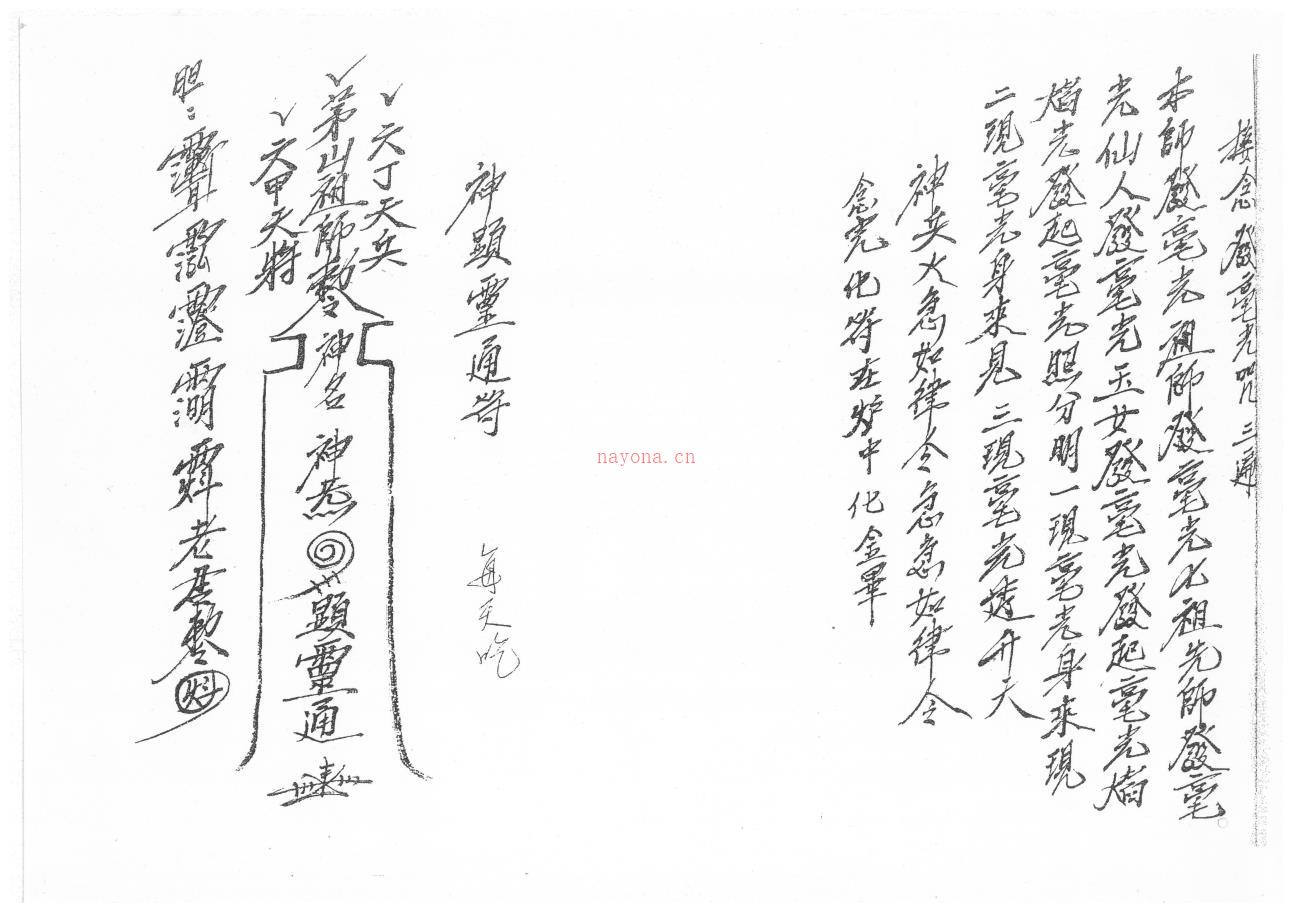 接念發毫光咒三遍
本師發毫光祖師發毫光七祖先師發毫
光仙人發毫光玉女發毫光發起毫光
光發起毫光照分明一現毫光身來現
二現毫光身來見三現毫光透開天
神兵火急如律令急急如律令
念完化符在炉中化金畢
神顯靈通符
每天吃
天丁天兵
茅山祖師勅令
六甲天將
神名
神炁
顯靈通
胆:
老君勅令
nayona.cn